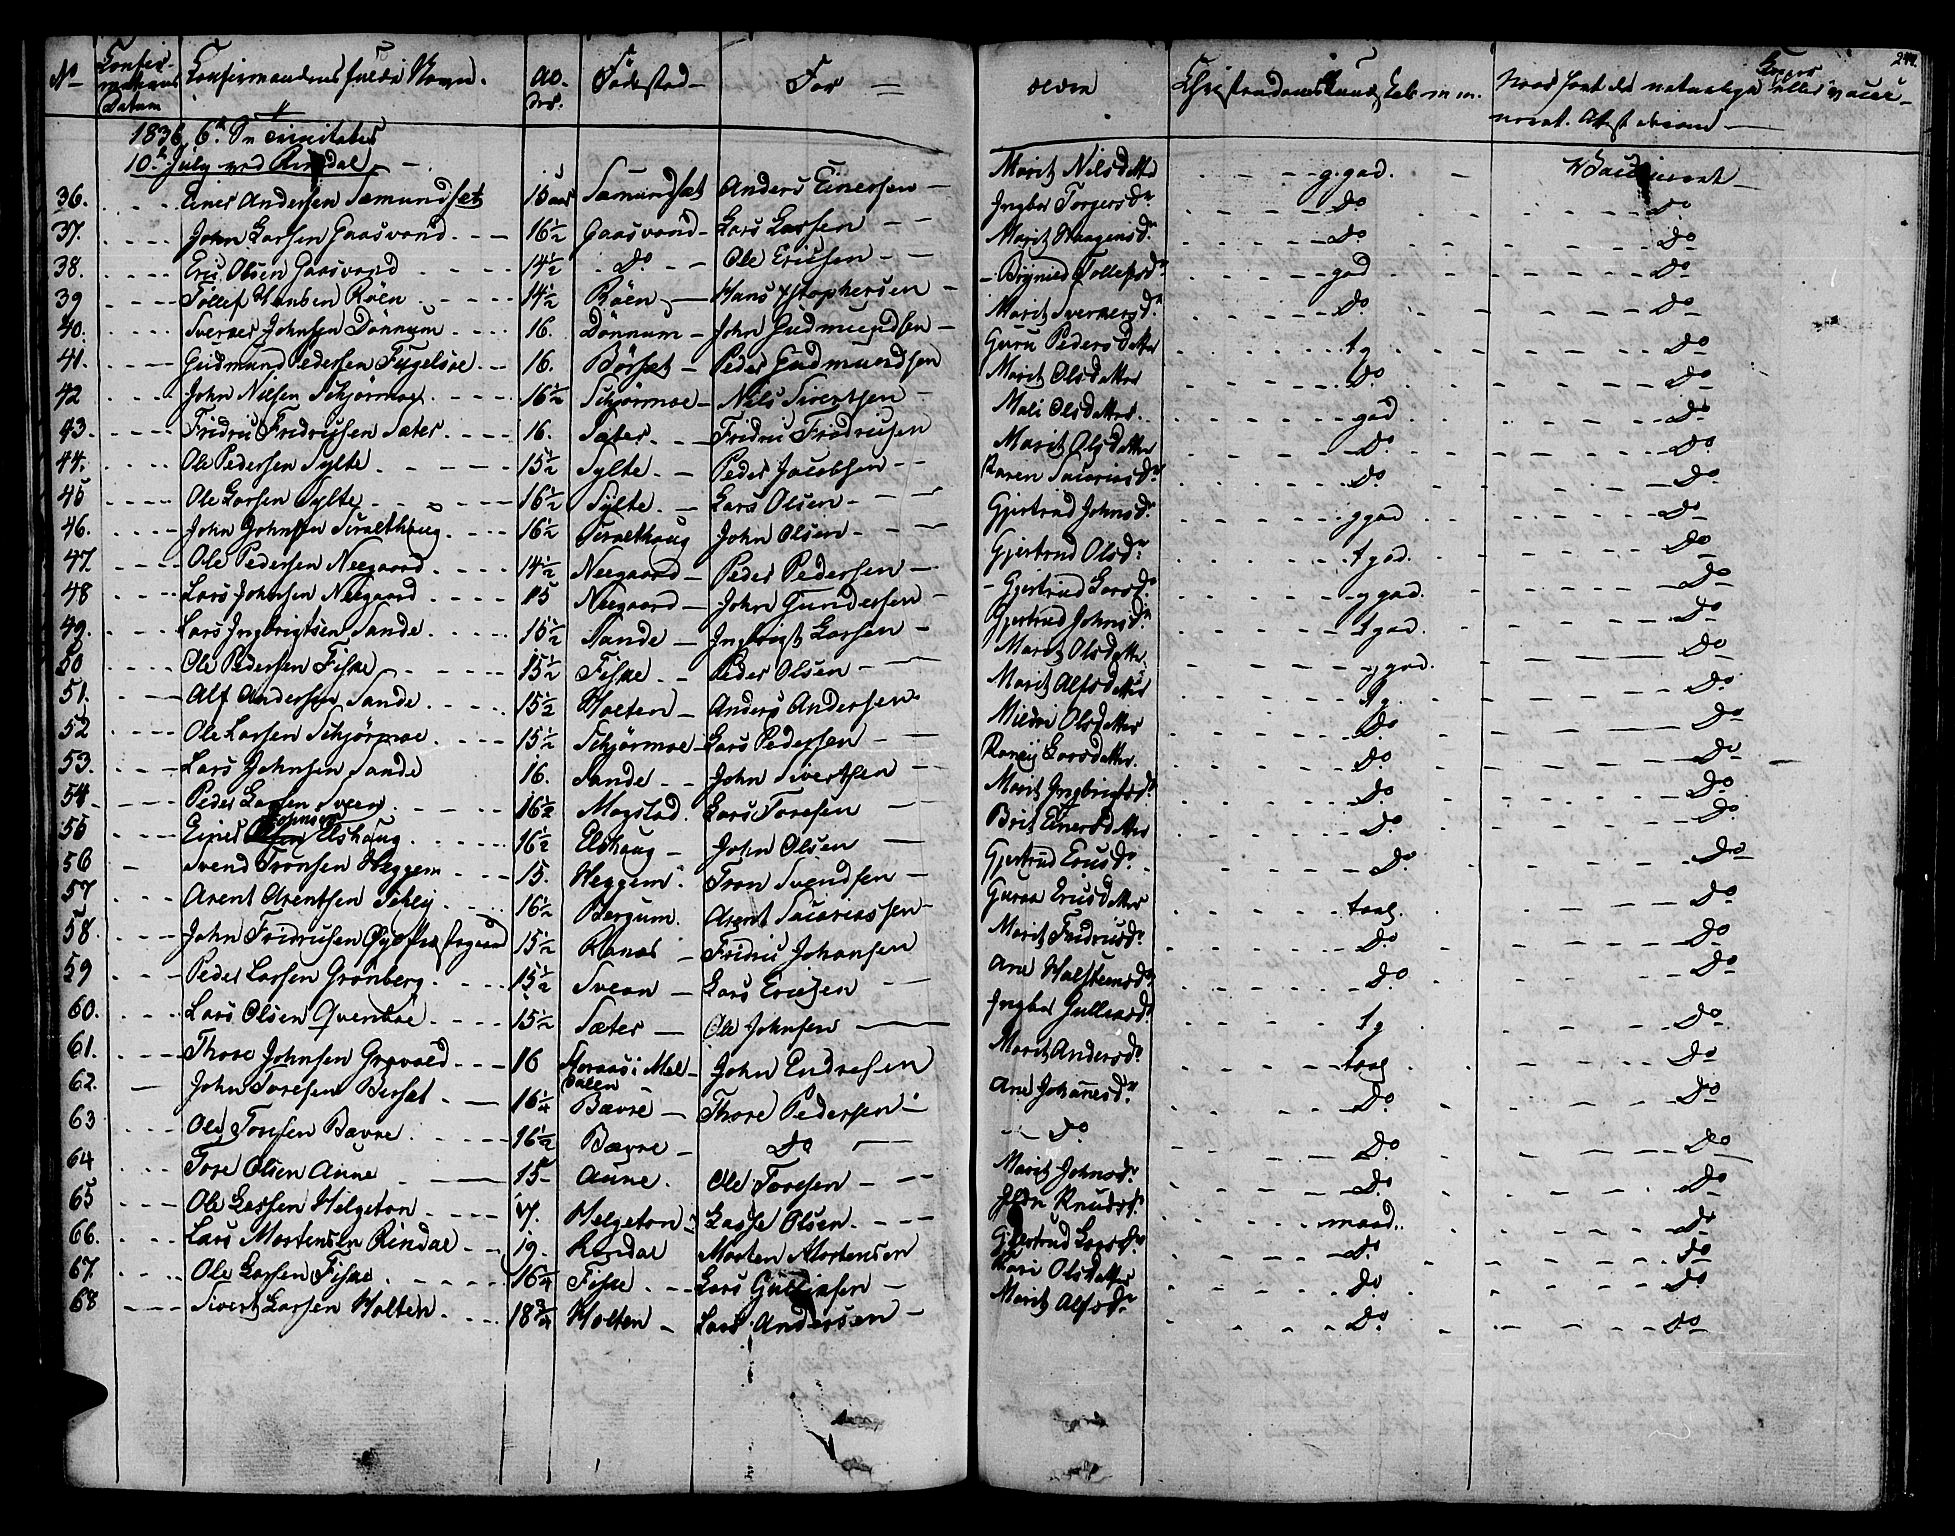 No Confirmations Datum Confirmandens fulde Navn. Alder. Födested Foræ- ldre Christendoms Kundskab m.m. Hvor havt de naturlige Kopper eller vaccineret. Attesteret 244.
1836, 6te Sn Trinitatis
10de July ved Rindal
36. Einer Andersen Sæmundset 15 aar Sæmundset Anders Einersen Marit Nilsdatter g. god. Vaccineret
37. John Larsen Gaasvand 16½ Gaasvand Lars Larsen Ingbor Torgersdr Do Do
38. Eric Olsen Gaasvand 14½ Do Ole Ericsen Marit Haagensdr Do Do
39 Tollef Hansen Röen 14½ Röen Hans Xstophersen Brynild Tollefsdr god Do
40. Sverner Johnsen Dönnum 16. Dönnum John Gudmundsen Marit Svernersdr Do Do
41. Gudmund Pedersen Fugelsöe 16. Börset Peder Gudmundsen Guru Pedersdatter tg Do
42 John Nilsen Schjörmoe 16½ Schjörmoe Nils Sivertsen Marit Olsdatter Do Do
43. Fridric Fridricsen Sæter 16. Sæter Fridric Fridricsen Mali Olsdatter god Do
44. Ole Pedersen Sylte 15½ Sylte Peder Jacobsen Marit Olsdatter Do Do
45 Ole Larsen Sylte 16½ Sylte Lars Olsen Karen Sacariasdr Do Do
46. John Johnsen Tiralthaug 16½ Tiralthaug John Olsen Gjertrud Johnsdr ggod Do
47. Ole Pedersen Neegaard 14½ Neegaard Peder Pedersen Gjertrud Olsdr tgod. Do
48 Lars Johnsen Neegaard 15 Neegaard John Gundersen Gjertrud Larsdr ggod. Do
49. Lars Ingbrigtsen Sande 15½ Sande Ingbrigt Larsen Gjertrud Johnsdr tgod. Do
50 Ole Pedersen Fiske 15½ Fiske Peder Olsen Marit Olsdatter ggod. Do
51. Alf Andersen Sande 15½ Holten Anders Andersen Marit Alfsdatter tg. Do
52 Ole Larsen Schjörmoe 15½ Schjörmoe Lars Pedersen Mildri Olsdatter Do Do
53. Lars Johnsen Sande 16. Sande John Sivertsen Ranei Larsdatter Do Do
54 Peder Larsen Sveen 16½ Mogstad Lars Toresen Marit Ingbrigtsdr Do Do
55 Einer Johnsen Elshaug 16½ Elshaug John Olsen Brit Einersdatter Do Do
56 Svend Tronsen Heggem 15. Heggem Tron Svendsen Gjertrud Ericsdr Do Do
57 Arent Arentsen Schei 16½ Bergum Arent Sacariassen Guroa Ericsdatter taal. Do
58. John Fridricsen 15½ Ranæs Fridric Johansen Marit Fridricsdr Do Do
59 Peder Larsen Grönberg 15½ Svean Lars Ericsen Ane Halstensdr Do Do
60. Lars Olsen Qvenbøe 15½ Sæter Ole Johnsen Ingbor Gullicsdr tg Do
61. Thore Johnsen Grøvald 16 i Meldalen John Endresen Marit Andersdr taal Do
62. John Toresen Berset 16¼ Bævre Thore Pedersen Ane Johannesdr Do Do
63 Ole Toresen Bævre 16½ Bævre Do Do Do Do
64 Tore Olsen Aune 15 Aune Ole Toresen Marit Johnsdr Do Do
65 Ole Lassen Helgeton 17. Helgeton Lasse Olsen Knudsdr maad. Do
66. Lars Mortensen Rindal 19. Rindal Morten Mortensen Gjertrud Larsdr Do Do
67. Ole Larsen Fiske 16¼ Fiske Lars Gullicsen Kari Olsdatter Do Do
68 Sivert Larsen Holten 18¾ Holten Lars Andersen Marit Alfsdr Do Do